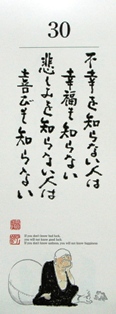 30
不幸を知らない人は
幸福も知らない
悲しみを知らない人は
喜びも知らない
If you don't know bad luck,
you will not know good luck.
If you don't know sadness, you will not know happiness.